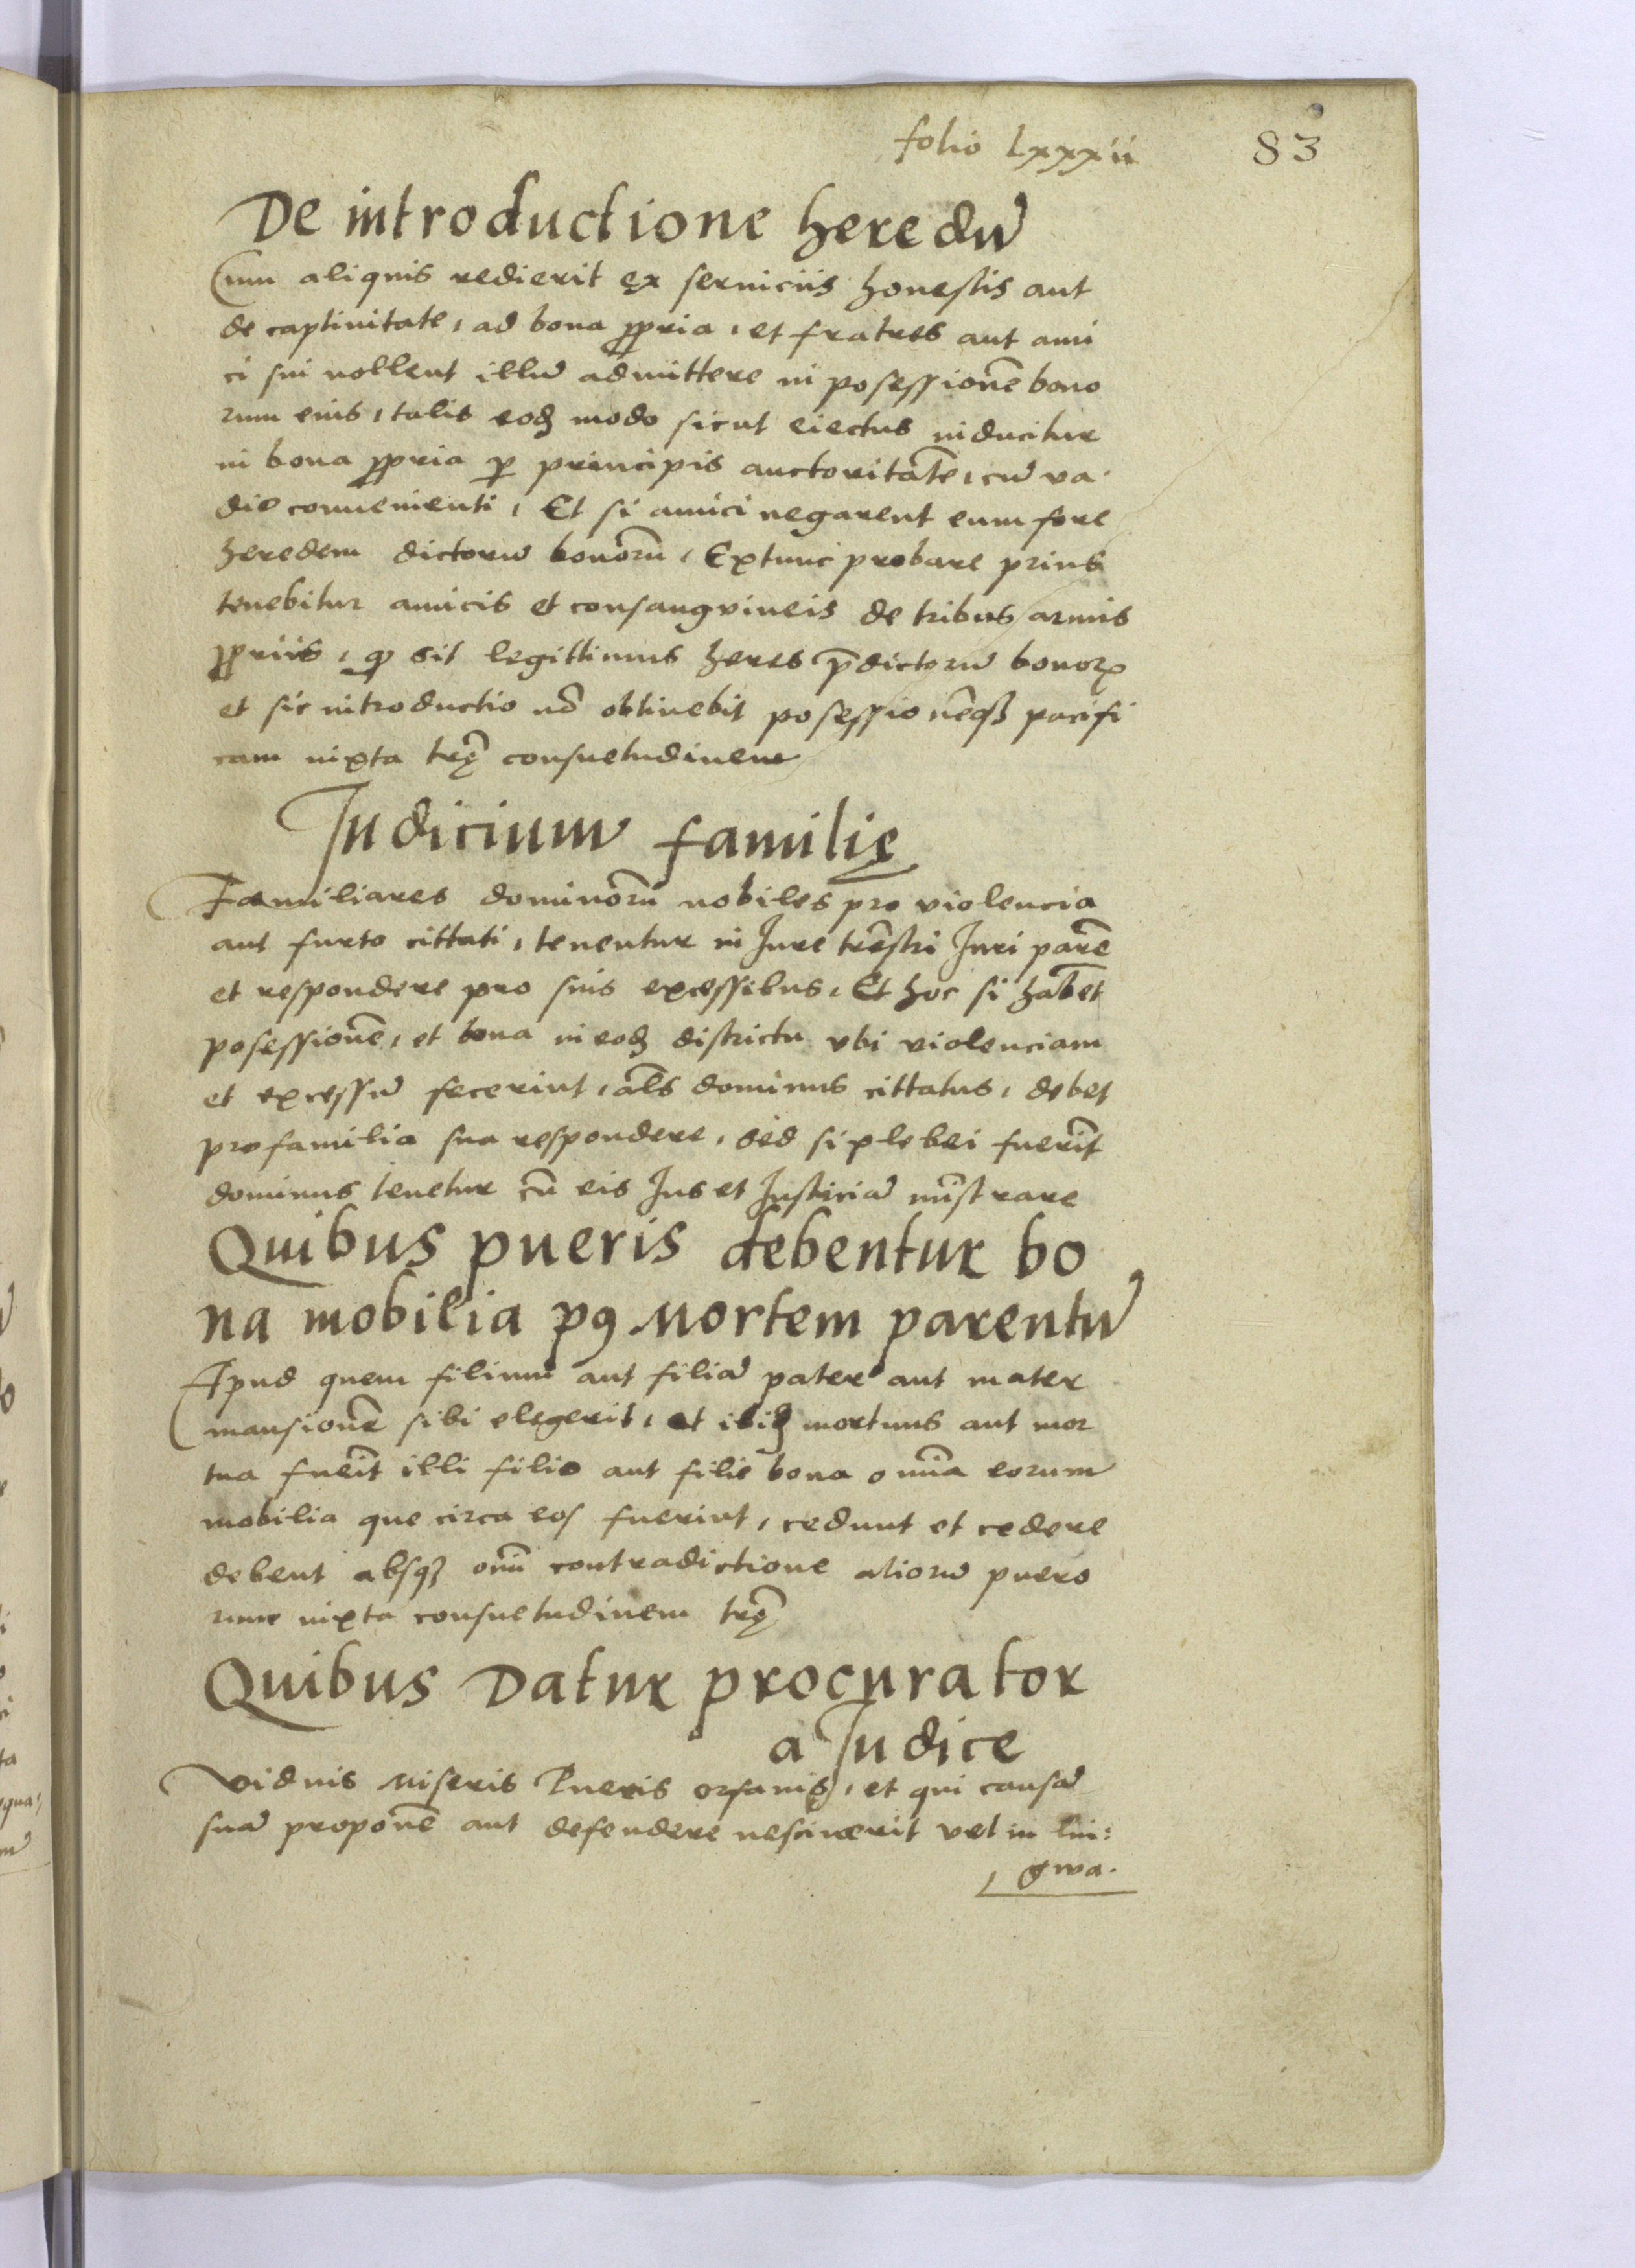 folio Lxxxii
83
De introductione heredū
Cum aliquis redierit ex seruiciis honestis aut
de captiuitate, ad bona ꝓpria, et fratres aut ami
ci sui nollent illū admittere in posessionē bono
rum eius, talis eodꝫ modo sicut eiectus inducitur
in bona ꝓpria ꝑ principis auctoritatē, cū va
dio conuenienti, Et si amici negarent eum fore
heredem dictorū bonorū, Extunc probare prius
tenebitur amicis et consangvineis de tribus armis
ꝓpriis, ꝙ sit legittimus heres p̄dictorū bonoꝝ
et sic introductio nō obtinebit posessionēqꝫ pacifi
cam iuxta trę̄ consuetudinem
Iudicium familię
Familiares dominorū nobiles pro violencia
aut furto cittati, tenentur in Iure trēstri Iuri parē
et respondere pro suis excessibus, Et hoc si habēt
posessionē, et bona in eodꝫ districtu vbi violenciam
et excessū fecerint, al̄s dominus cittatus, debet
pro familia sua respondere, sed si plebei fuerīt
dominus tenetur cū eis Ius et Iusticiā mīstrare
Quibus pueris debentur bo
na mobilia pꝰ Mortem parentū
Apud quem filium aut filiā pater aut mater
mansionē sibi elegerit, et ibidꝫ mortuus aut mor
tua fuēit illi filio aut filie bona omīa eorum
mobilia que circa eos fuerint, cedunt et cedere
debent absqꝫ omī contradictione aliorū puero
rum iuxta consuetudinem trę̄
Quibus Datur procurator
a Iudice
Viduis Miseris Pueris orfanis, et qui causā
suā proponē aut defendere nesciuerit vel in lin:
gwa.